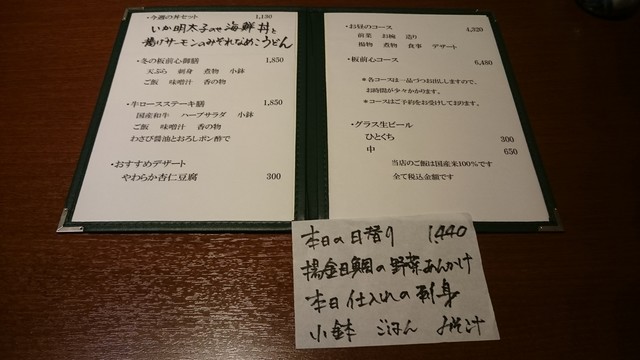 ・今週の丼セット 1,130
いか明太子のせ海鮮丼と
揚げサーモンのみぞれなめこうどん
・冬の板前心御膳 1,850
天ぷら 刺身 煮物 小鉢
ご飯 味噌汁 香の物
・牛ロースステーキ膳 1,850
国産和牛 ハーブサラダ 小鉢
ご飯 味噌汁 香の物
わさび醤油とおろしポン酢で
・おすすめデザート
やわらか杏仁豆腐 300
・お昼のコース 4,320
前菜 お椀 造り
揚物 煮物 食事 デザート
・板前心コース 6,480
＊各コースは一品づつお出ししますので、
お時間が多々かかります。
＊コースはご予約をお受けしております。
・グラス生ビール
ひとくち 300
中 650
当店のご飯は国産米100％です
全て税込金額です
本日の日替り 1,440
揚金目鯛の野菜あんかけ
本日仕入れの刺身
小鉢 ごはん みそ汁